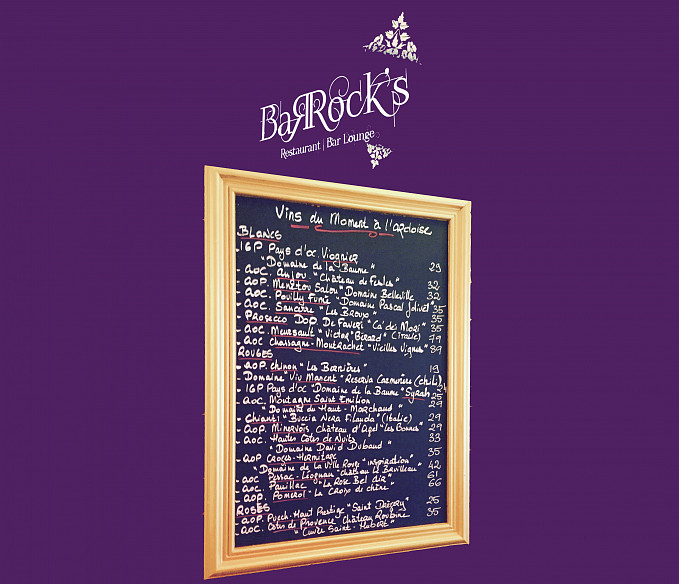 BaRRock's
Restaurant | Bar Lounge
Vins du Moment à l'ardoise
BLANCS
IGP Pays d'oc Viognier
"Domaine de la Baume" 29
AOC. Anjou "Château de Fesles" 32
AOP. Menetou Salon "Domaine Belleville 32
AOC. Pouilly Fumé "Domaine Pascal Jolivet" 35
AOC. Sancerre "Les Broux" 35
PROSECCO DOP. De Faveri "Ca' dei Mori" 35
AOC. Meursault "Victor Girard" (Italie) 79
AOC Chassagne-Montrachet "Vieilles Vignes" 89
ROUGES
AOP. Chinon "Les Bernières" 19
Domaine "Viu Manent" Reserva Carmenère (Chili)
IGP Pays d'oc "Domaine de la Baume" Syrah 25
AOC. Montagne Saint Emilion 29
"Domaine du Haut-Marchaud"
Chianti "Buccia Nera (Italie) 29
AOP. Minervois, Château d'Agel "Les Bonnes" 29
AOC. Hautes Côtes de Nuits 33
"Domaine David Dubaud"
AOP Crozes-Hermitage 35
"Domaine de la Ville Rouge "inspiration"
AOC Pessac-Léognan "Château Le Bruilleau" 42
AOC. Pauillac "La Rose Bel Air" 61
AOP. Pomerol "La Croix de chêne" 66
ROSÉS
AOP. Puech-Haut Prestige "Saint Drézéry" 25
AOC. Côtes de Provence Château Roubine 35
"Cuvée Saint-Hubert"